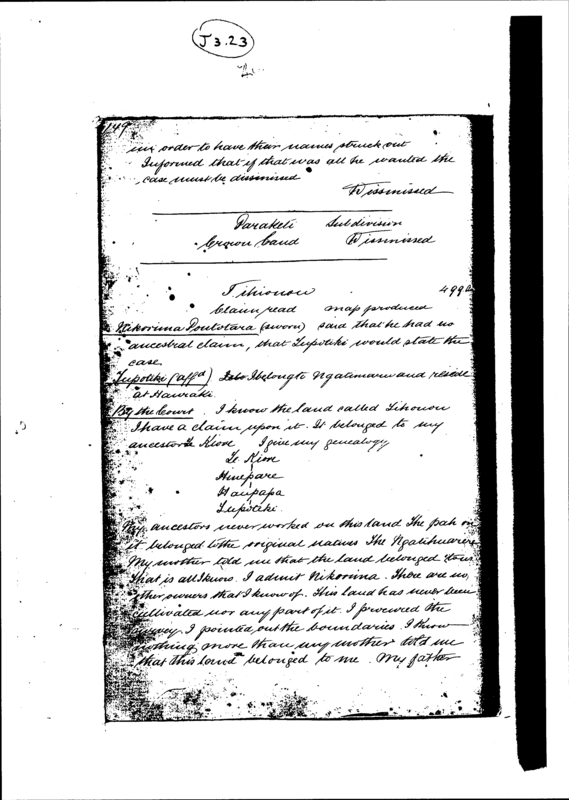 J 3.23
149
in order to have their names struck out
Informed that if that was all he wanted the
case must be dismissed
Dismissed
Paraketi Subdivision
Crown Land Dismissed
Tihionou 499a
Claim read map produced
Nikorima Poutotara (sworn) said that he had no
ancestral claim, that Tupotiki would state the
case
Tupotiki (affd) I belong to Ngatimaru and reside
at Hauraki
By the Court. I know the land called Tihonou
I have a claim upon it. It belonged to my
ancestor Te Kiore I give my genealogy
Te Kiore
Hinepare
Haupapa
Tupotiki
My ancestors never worked on this land The pah on
it belonged to the original natives The Ngatihuarere
My mother told me that the land belonged to us
That is all I know. I admit Nikorima. There are no
other owners that I know of. This land has never been
cultivated nor any part of it. I procured the
survey. I pointed out the boundaries. I know
nothing more than my mother told me
that this land belonged to me. My father